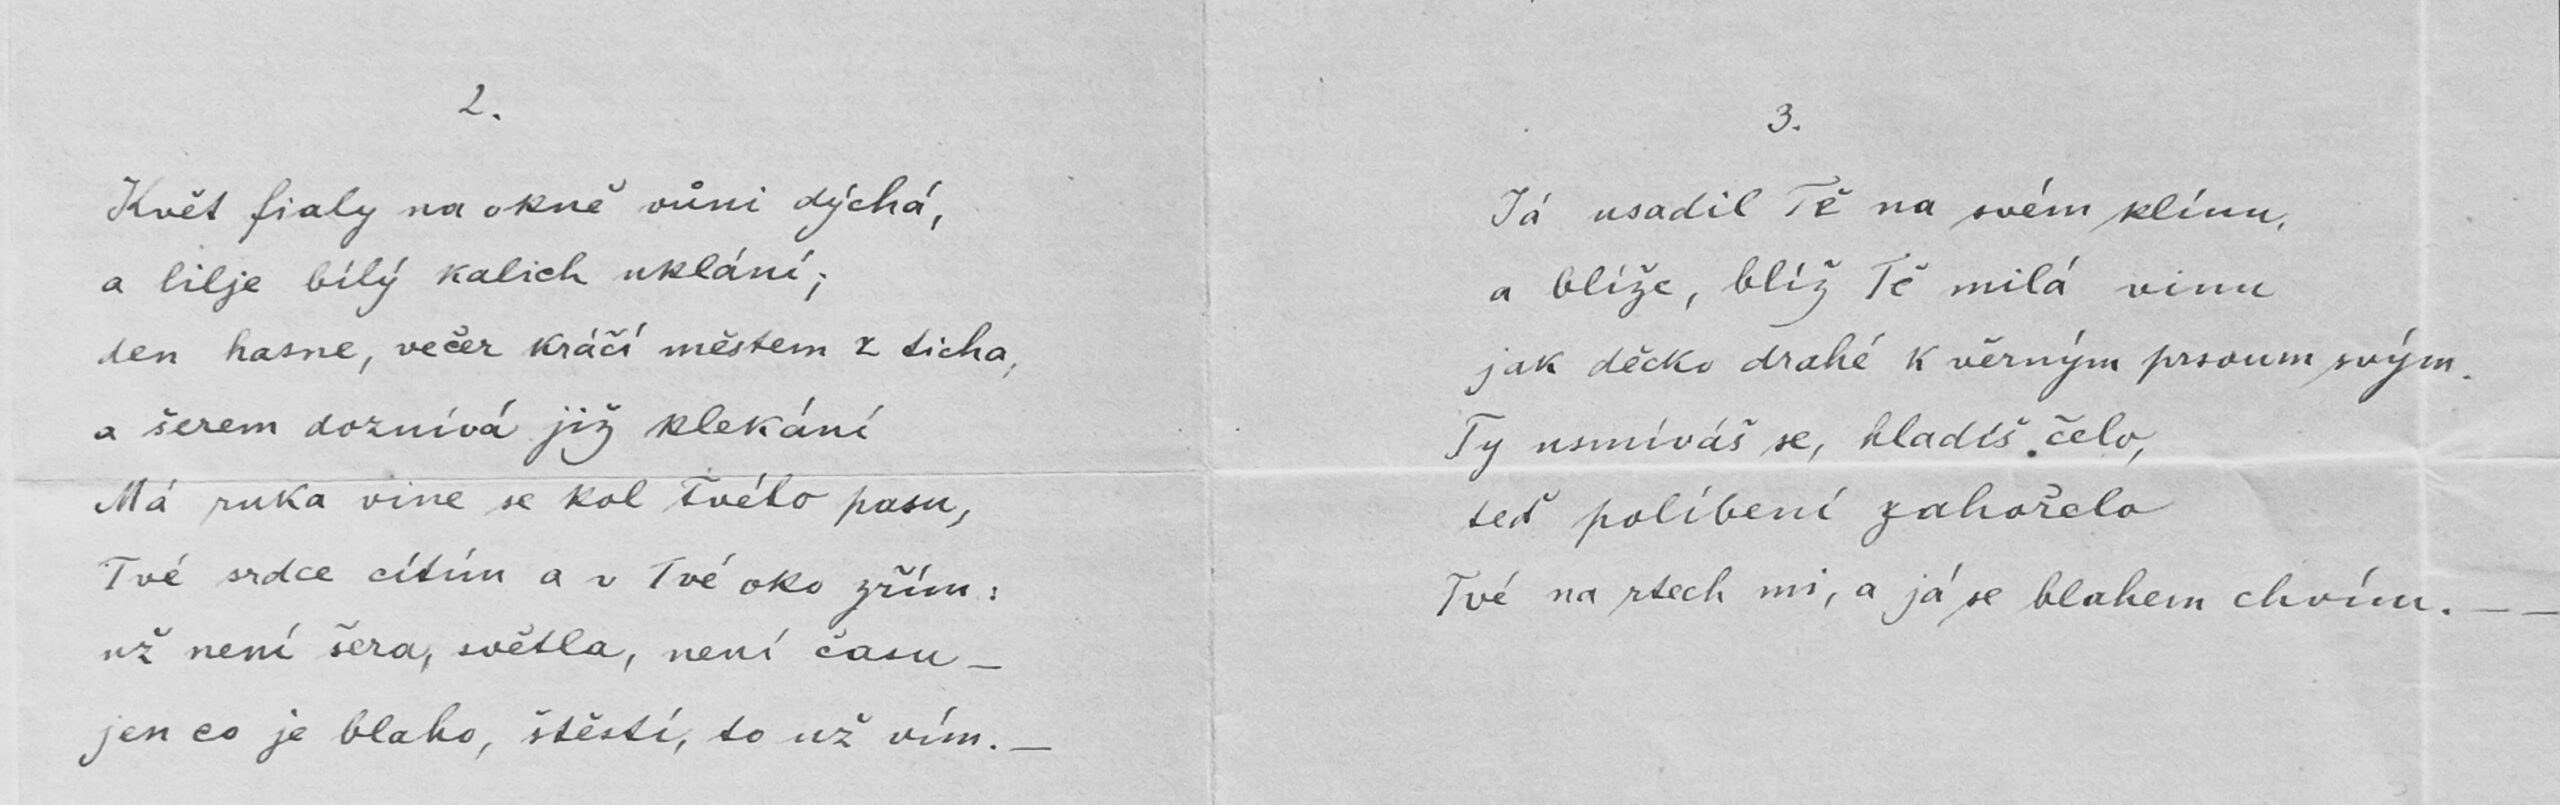 2.
Květ fialy na okně vůni dýchá,
a lilje bílý kalich uklání;
den hasne, večer kráčí městem z ticha,
a šerem doznívá již klekání
Má ruka vine se kol Tvého pasu,
Tvé srdce cítím a v Tvé oko zřím:
už není šera, světla, není času —
jen co je blaho, štěstí, to už vím. —
3.
Já usadil Tě na svém klínu,
a blíže, blíž Tě milá vinu
jak děcko drahé k věrným prsoum svým.
Ty usmíváš se, hladíš čelo,
teď políbení zahořelo
Tvé na rtech mi, a já se blahem chvím. — —